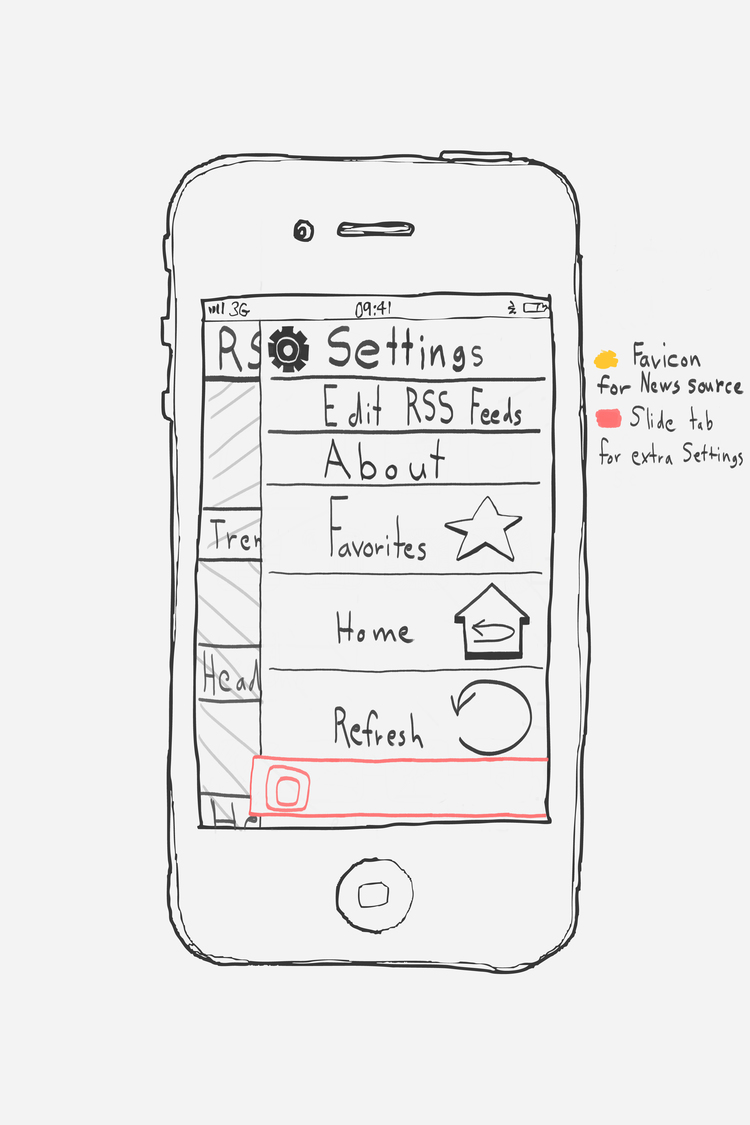 3G 09:41
RS Settings
Edit RSS Feeds
About
Favorites
Tren
Home
Head
Refresh
He
Favicon
for News source
Slide tab
for extra Settings